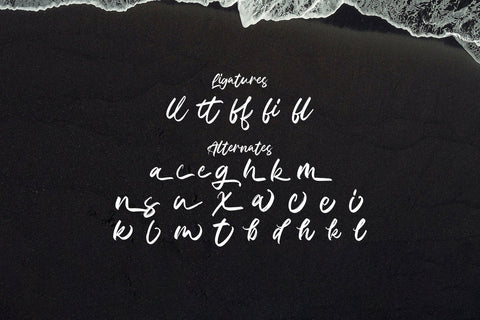 Ligatures
ll tt ff fi fl
Alternates
a c e g h k m
n s u x w o e i
b l m t b d h k l